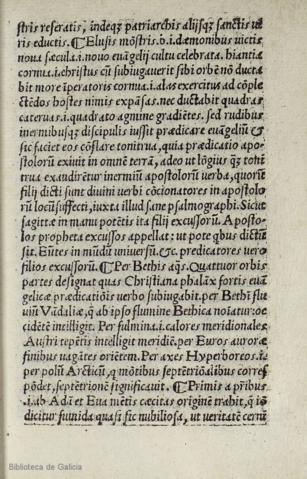 stris reseratis, indeqȝ patriarchis alijsqȝ sanctis ui
ris eductis. ¶ Elusis mōstris. b. i. dæmonibus uictis
noua sæcula. i. nouo euāgelij cultu celebrata. hiantia
cornua. i. christus cū subiugauerit sibi orbē nō ducta
bit more īperatoris cornua. i. alas exercitus ad cōple
ctēdos hostes nimis expāsas. nec ductabit quadras
cateruas. i. quadrato agmine gradiētes. sed rudibus
inermibusqȝ discipulis iussit prædicare euāgeliū &
sic faciet eos cōflare tonitrua, quia prædicatio apo-
stolorū exiuit in omnē terrā, adeo ut lōgius q̄ȝ toni
trua exaudirētur inermiū apostolorū uerba, quorū
filij dicti sunt diuini uerbi cōcionatores in apostolo
rū locū suffecti, iuxta illud sane psalmographi. Sicut
sagittæ in manu potētis ita filij excussorū. Aposto-
los propheta excussos appellat: ut pote q̄bus dictū
sit. Eūtes in mūdū uniuersū. &c. predicatores uero
filios excussorū. ¶ Per Bethis aq̄s. Quattuor orbis
partes designat quas Christiana phalāx fortis euā
gelicæ prædicatiōis uerbo subiugabit. per Bethī flu
uiū Vādaliæ, q̄ ab ipso flumine Bethica noīatur: oc
cidētē intelligit. Per fulmina. i. calores meridionales
Austri tepētis intelligit meridiē. per Euros auroræ
finibus uagātes oriētem. Per axes Hyperboreos. i.
per polū Arcticū, q̄ mōtibus septētriōalibus corres
pōdet, septētrionē significauit. ¶ Primis a p̄ribus
. i. ab Adā et Eua mētis cæcitas originē trahit, q̄ iō
dicitur fumida quasi sic nubilosa, ut ueritatē cernē
Biblioteca de Galicia